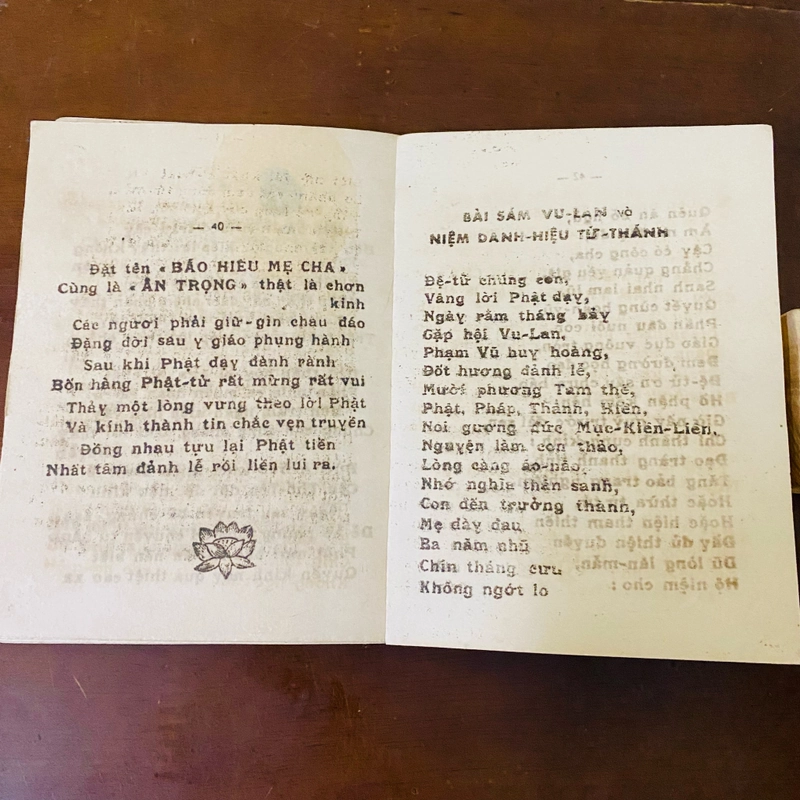 — 40 —
Đặt tên « BÁO HIẾU MẸ CHA »
Cùng là « ÂN TRỌNG » thật là chơn
kinh
Các ngươi phải giữ-gìn châu đáo
Đặng đời sau y giáo phụng hành
Sau khi Phật dạy đành rành
Bốn hàng Phật-tử rất mừng rất vui
Thảy một lòng vưng theo lời Phật
Và kính thành tin chắc vẹn truyền
Đồng nhau tựu lại Phật tiền
Nhất tâm đảnh lễ rồi liền lui ra.
BÀI SÁM VU-LAN và
NIỆM DANH-HIỆU TỨ-THÁNH
Đệ-tử chúng con,
Vâng lời Phật dạy,
Ngày rằm tháng bảy
Gặp hội Vu-Lan,
Phạm Vũ huy hoàng,
Đốt hương đảnh lễ,
Mười phương Tam thế,
Phật, Pháp, Thánh, Hiền,
Noi gương đức Mục-Kiền-Liên,
Nguyện làm con thảo,
Lòng càng áo-não,
Nhớ nghĩa thân sanh,
Con đến trưởng thành,
Mẹ dày đau
Ba năm nhũ
Chín tháng cưu
Không ngớt lo